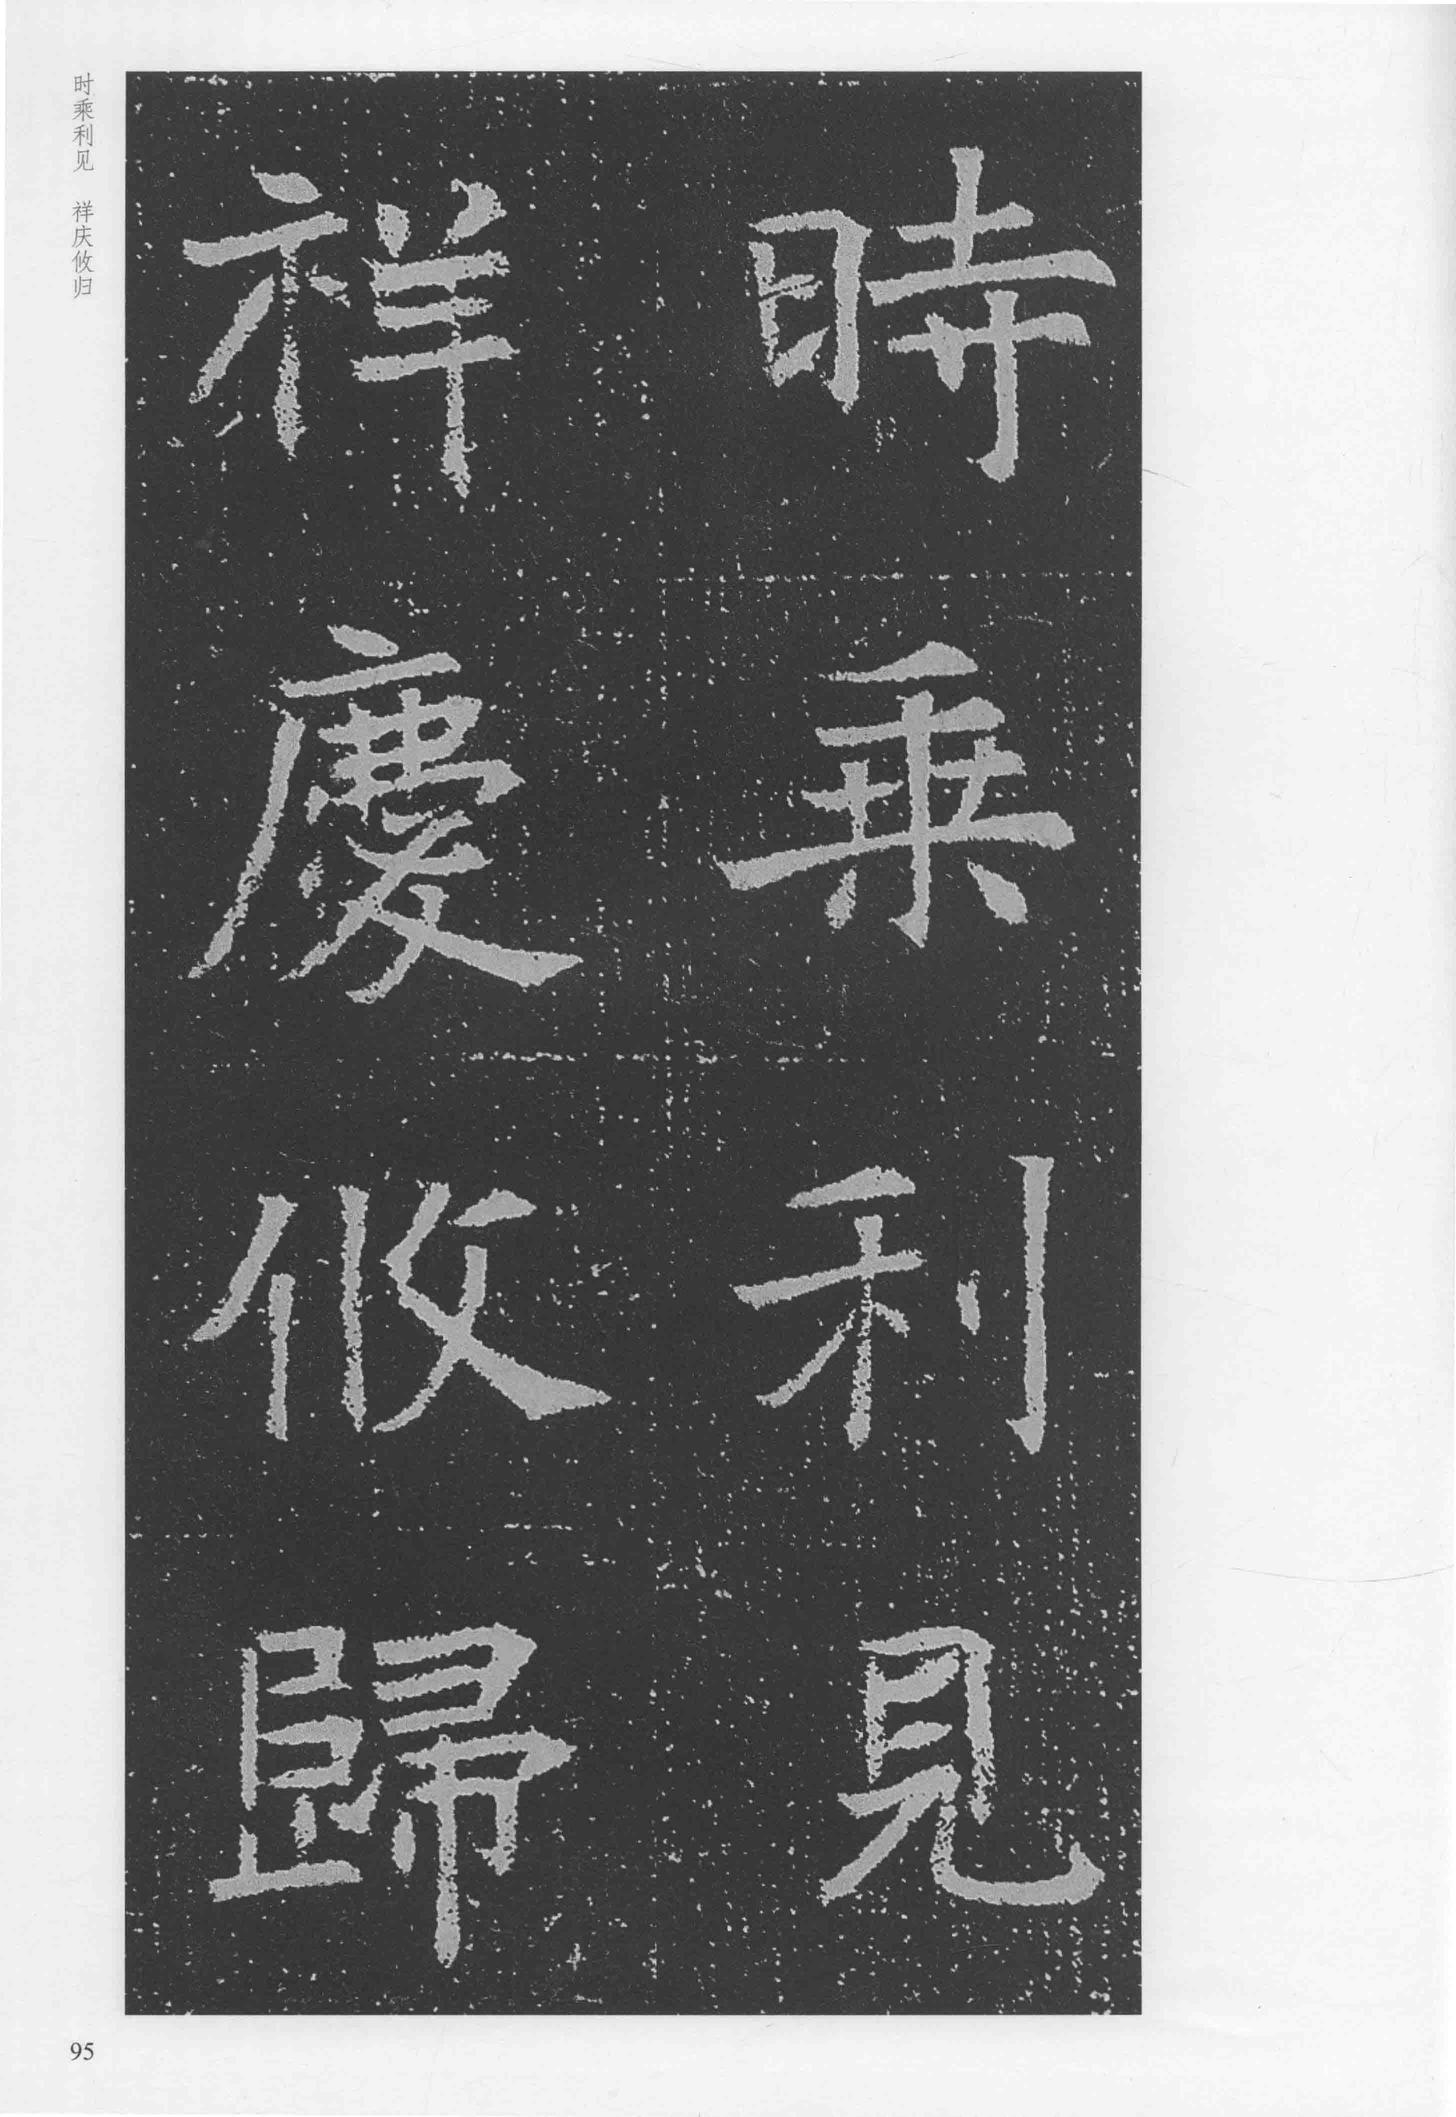 時乘利見
祥慶攸歸
时乘利见 祥庆攸归
95